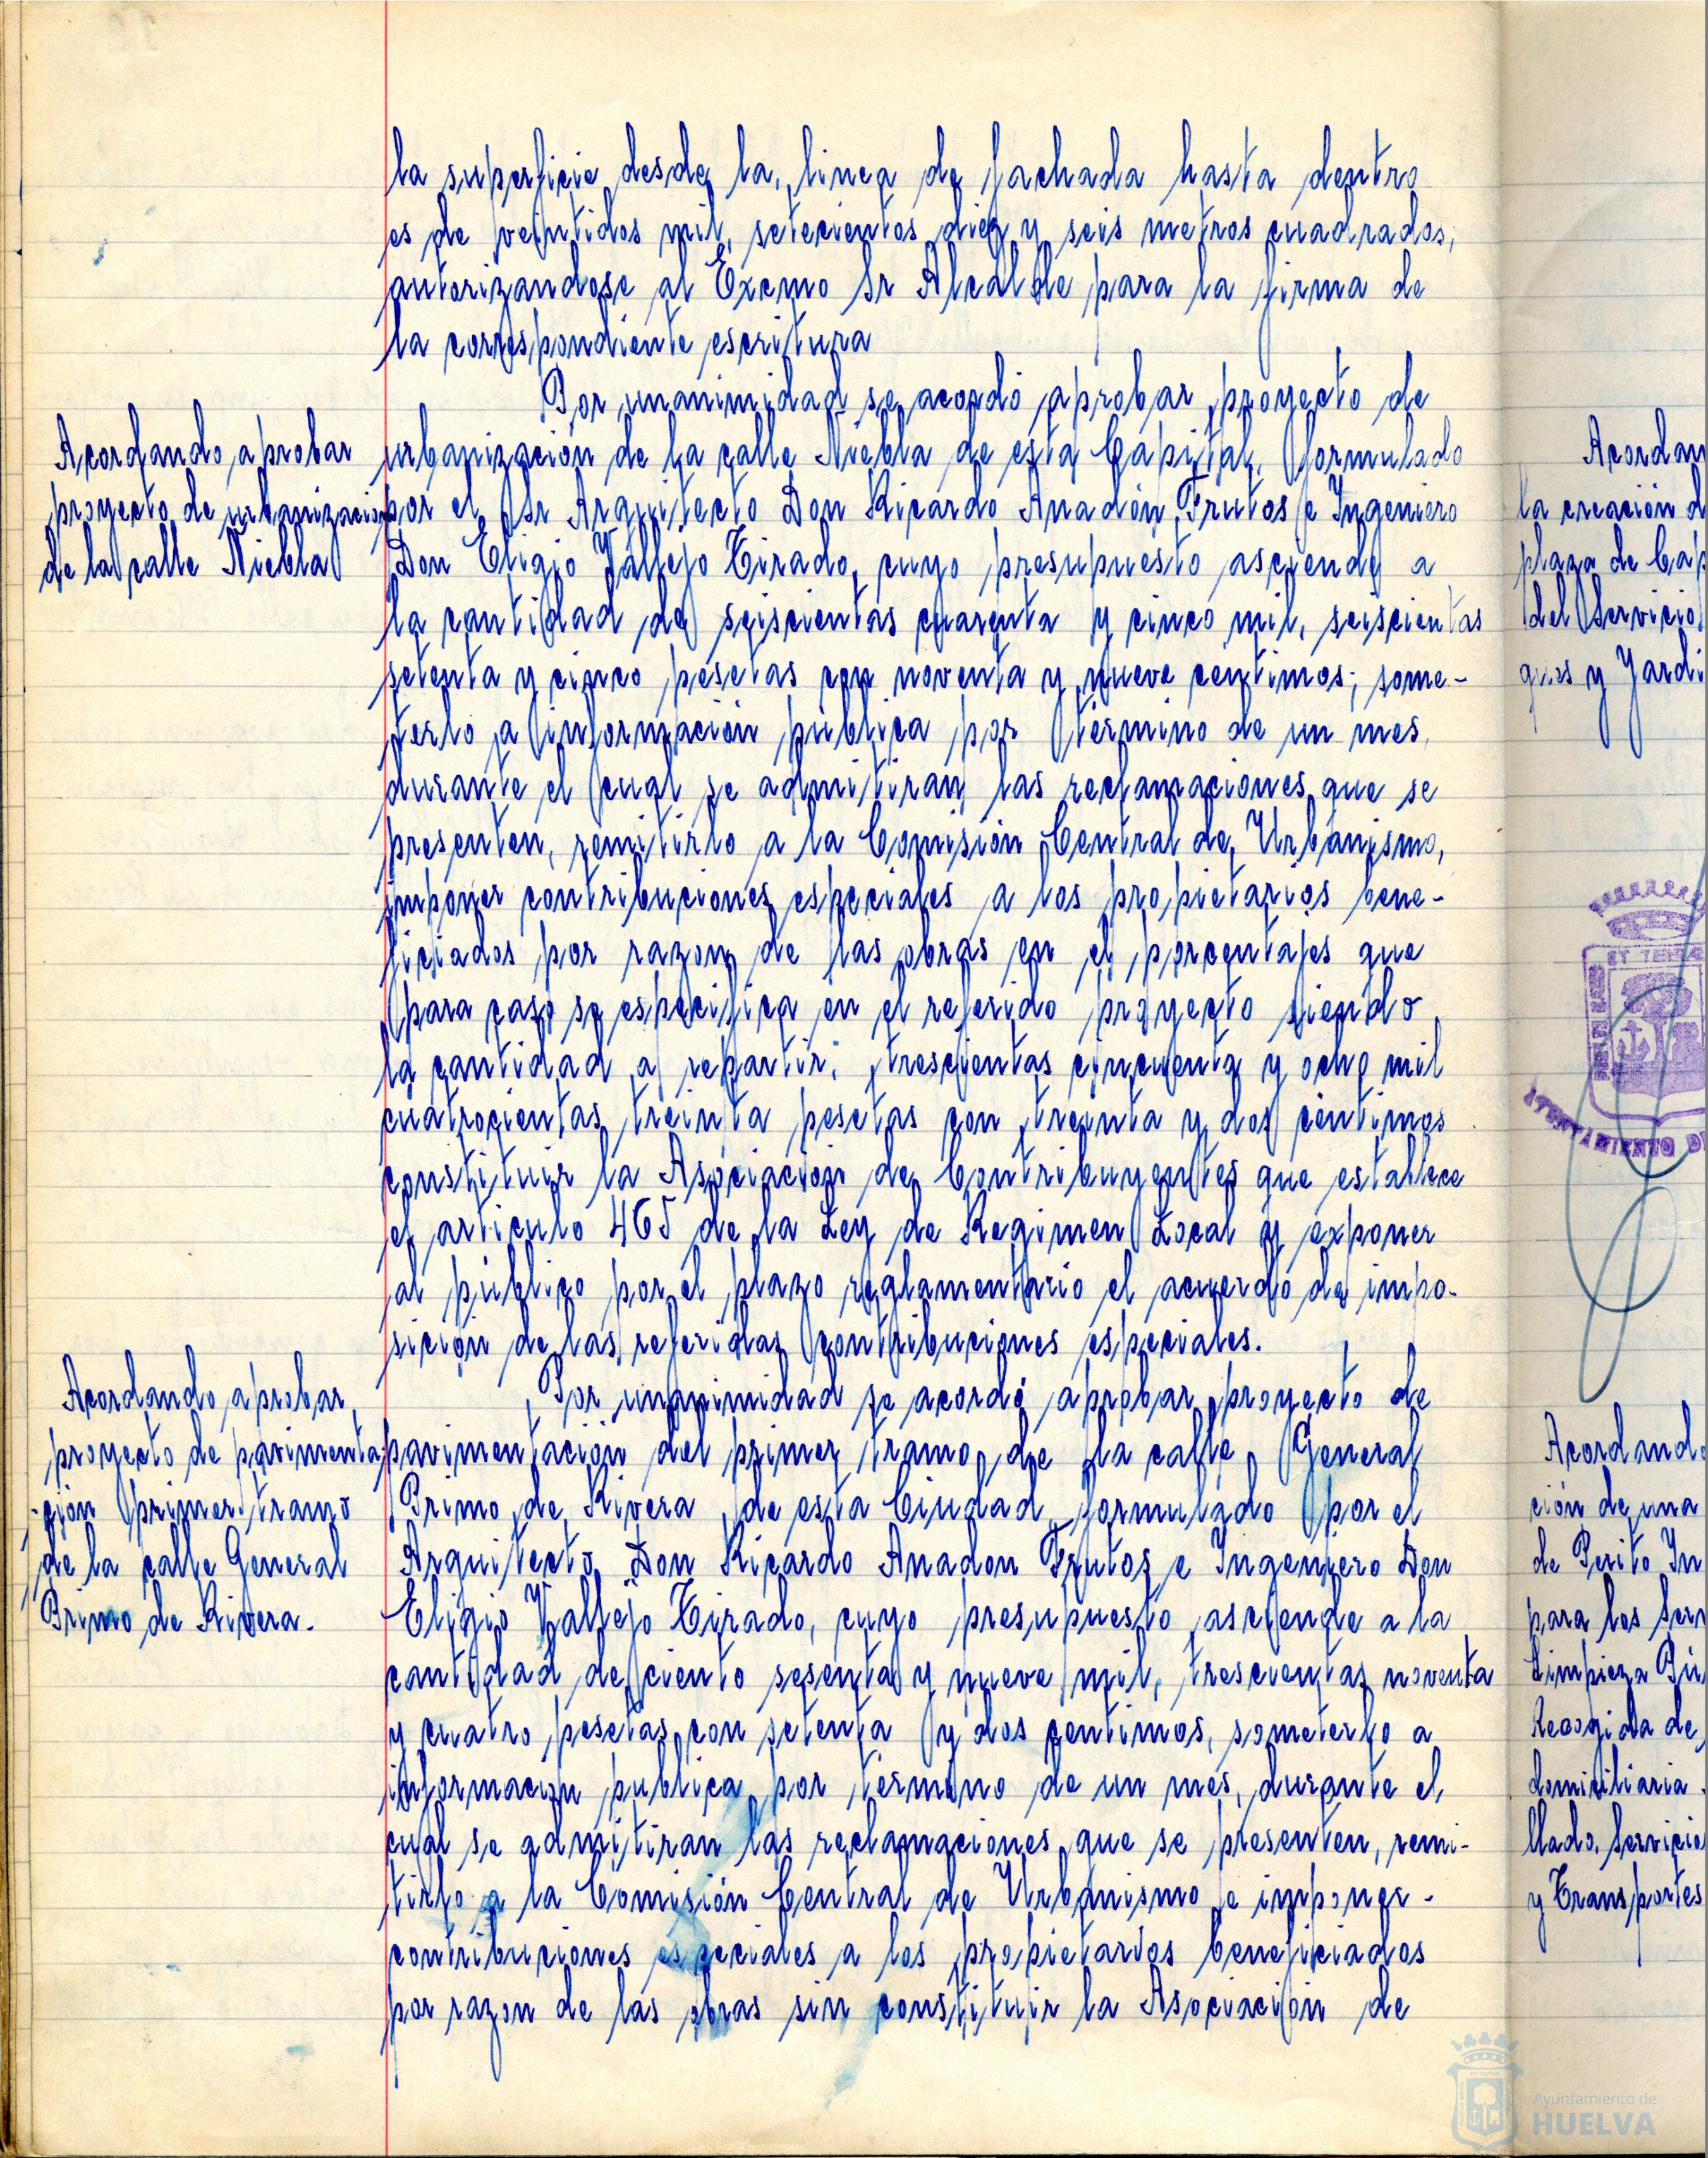 la superficie desde la, linea de fachada hasta dentro
es de veintidos mil, setecientos diez y seis metros cuadrados,
autorizandose al Excmo Sr Alcalde para la firma de
la correspondiente escritura
Por unanimidad se acordó aprobar proyecto de
Acordando aprobar
proyecto de urbanización
de la calle Niebla
urbanización de la calle Niebla de esta Capital, formulado
por el Sr Arquitecto Don Ricardo Anadón Frutos e Ingeniero
Don Eligio Vallejo Tirado, cuyo presupuesto asciende a
la cantidad de seiscientas cuarenta y cinco mil, seiscientas
setenta y cinco pesetas con noventa y nueve centimos; some-
terlo a información pública por término de un mes,
durante el cual se admitiran las reclamaciones que se
presenten, remitirlo a la Comisión Central de Urbanismo,
imponer contribuciones especiales a los propietarios bene-
ficiados por razon de las obras en el porcentajes que
para caso se especifica en el referido proyecto siendo
la cantidad a repartir, trescientas cincuenta y ocho mil
cuatrocientas treinta pesetas con treinta y dos centimos
constituir la Asociación de Contribuyentes que establece
el articulo 465 de la Ley de Regimen Local y exponer
al público por el plazo reglamentario el acuerdo de impo-
sición de las referidas contribuciones especiales.
Acordando aprobar
proyecto de pavimenta-
ción primer tramo
de la calle General
Primo de Rivera.
Por unanimidad se acordó aprobar proyecto de
pavimentación del primer tramo de la calle General
Primo de Rivera de esta Ciudad formulado por el
Arquitecto Don Ricardo Anadon Frutos e Ingeniero Don
Eligio Vallejo Tirado, cuyo presupuesto asciende a la
cantidad de ciento sesenta y nueve mil, trescientas noventa
y cuatro pesetas con setenta y dos centimos, someterlo a
información publica por termino de un mes, durante el
cual se admitiran las reclamaciones que se presenten, remi-
tirlo a la Comisión Central de Urbanismo e imponer
contribuciones especiales a los propietarios beneficiados
por razon de las obras sin constituir la Asociación de
Acordan
la creación d
plaza de Cap
del Servicio
ques y Jardi
AYUNTAMIENTO DE
Acordando
ción de una
de Perito In
para los Serv
Limpieza Pú
Recogida de
domiciliaria
llado, Servicio
y Transportes
Ayuntamiento de
HUELVA